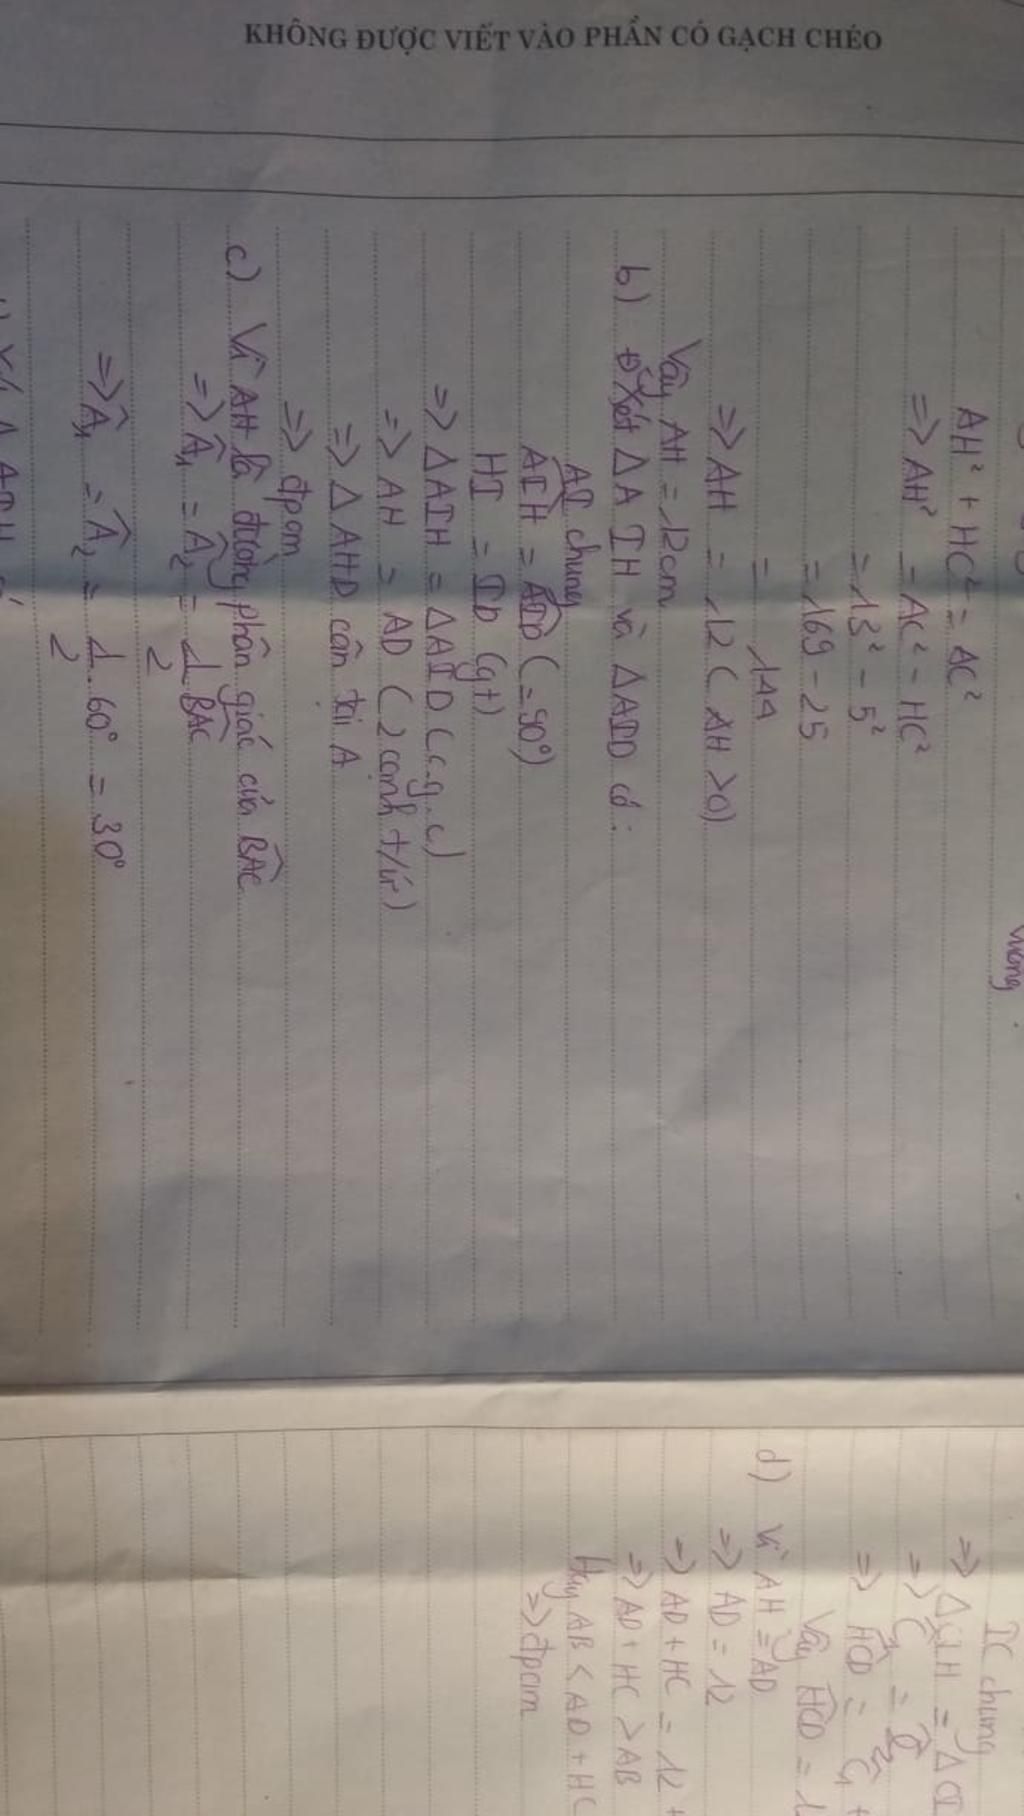 KHÔNG ĐƯỢC VIẾT VÀO PHẦN CÓ GẠCH CHÉO
vuông
AH² + HC² = AC²
=> AH² = AC² - HC²
= 13² - 5²
= 169 - 25
= 144
=> AH = 12 (AH > 0)
Vậy AH = 12cm
b) Xét Δ AIH và Δ AID có:
AI chung
AIH = AID (= 90°)
HI = ID (gt)
=> Δ AIH = Δ AID (c.g.c)
=> AH = AD (2 cạnh t/ứ)
=> Δ AHD cân tại A
=> đpcm
c) Vì AH là đường phân giác của BAC
=> Â₁ = Â₂ = 1/2 BAC
=> Â₁ = Â₂ = 1/2 . 60° = 30°
IC chung
=> Δ CIH = Δ CI
=> Ĉ₁ = Ĉ₂
=> HCD = Ĉ₁ +
Vậy HCD = 1
d) Vì AH = AD
=> AD = 12
=> AD + HC = 12 +
=> AD + HC > AB
Hay AB < AD + HC
=> đpcm